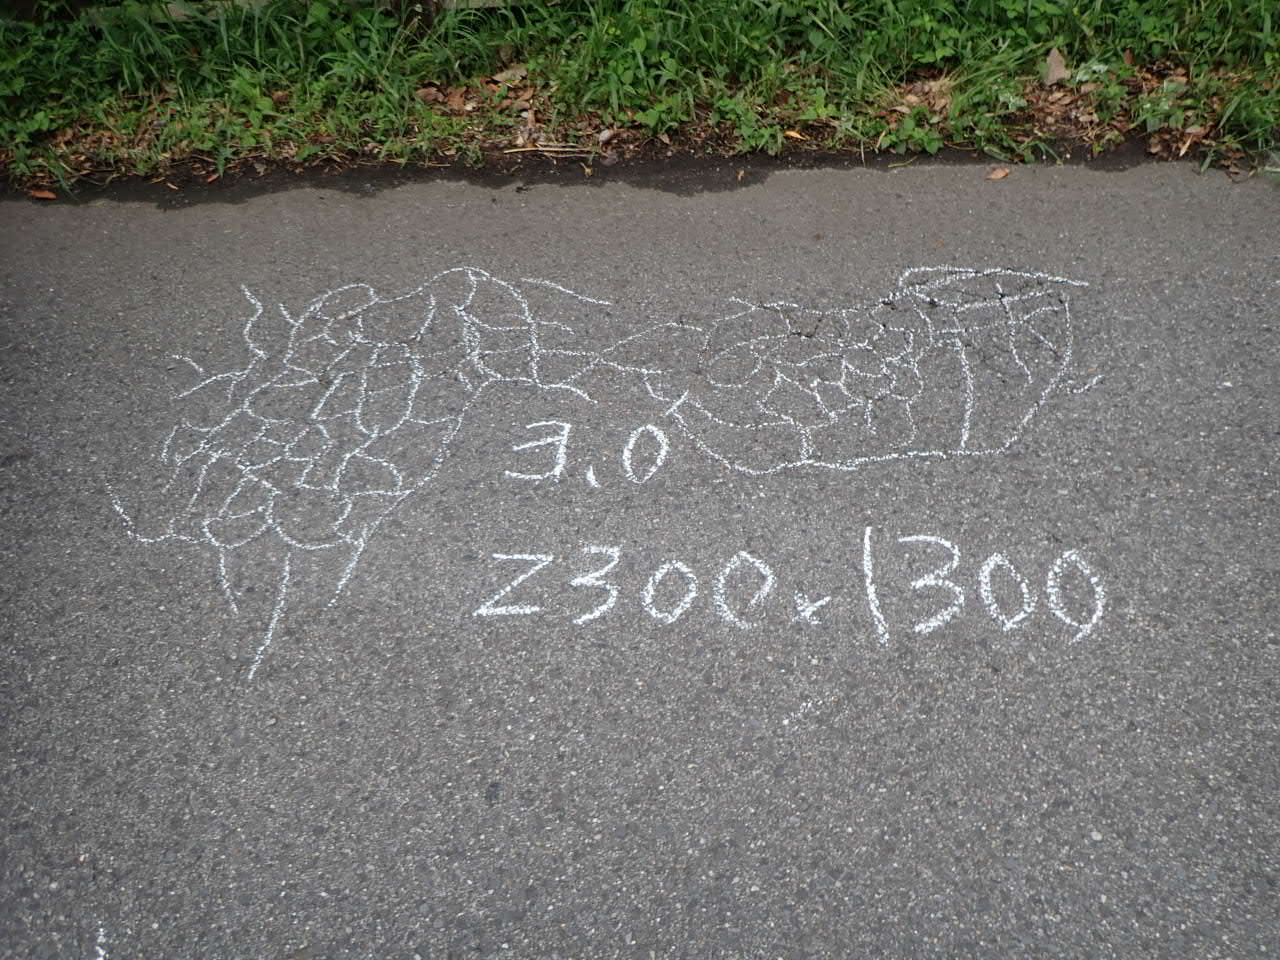 3.0
2300×1300